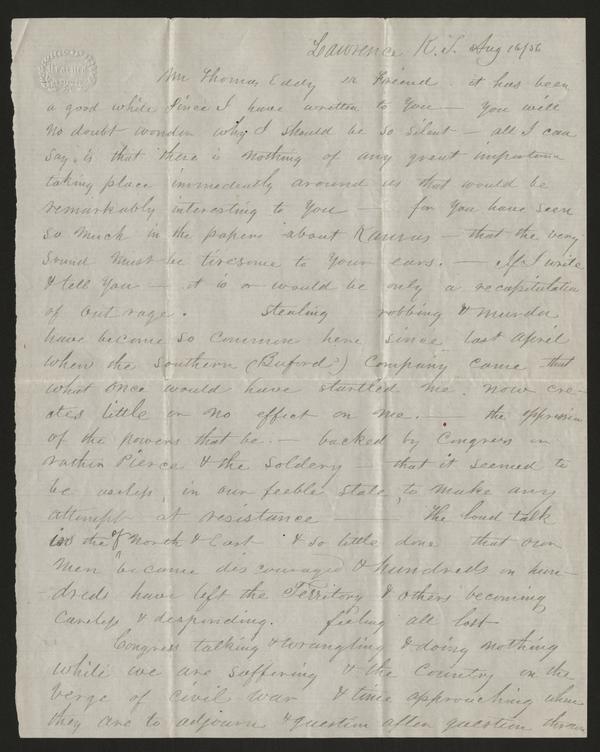 Lawrence K.T. Aug 16/56
Mr Thomas Eddy Friend it has been
a good while since I have written to You — You will
no doubt wonder why I should be so silent — all I can
say is that there is nothing of any great importance
taking place immediently around us that would be
remarkably interesting to You — for You have seen
so much in the papers about Kansas — that the very
sound must be tiresome to Your ears. — If I write
& tell You — it is or would be only a recapitulation
of outrage. Stealing robbing & murder
have become so common here since last April
when the Southern (Buford) Company came that
what once would have startled me now cre-
ates little or no effect on me. — the oppression
of the powers that be — backed by Congress or
rather Pierce & the Soldery — that it seemed to
be useless, in our feeble state, to make any
attempt at resistance — The loud talk
of the North & East & so little done that our
men became discouraged & hundreds on hun-
dreds have left the Territory & others becoming
Careless & desponding. feeling all lost
Congress talking & wrangling & doing nothing
while we are suffering & the Country on the
verge of civil war & time approaching when
they are to adjourn & question after question thrown